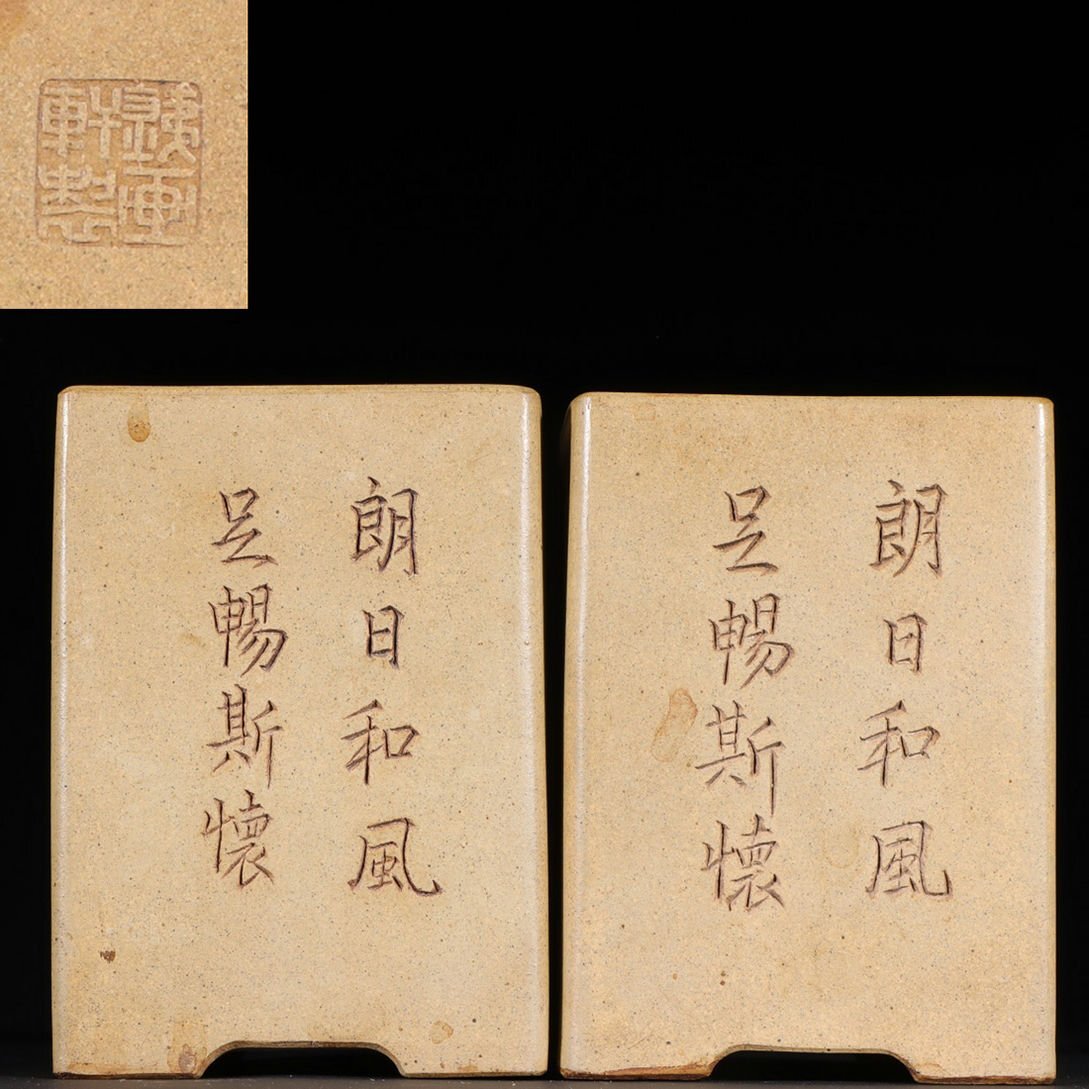 朗日和風
足暢斯懷
朗日和風
足暢斯懷
軒製